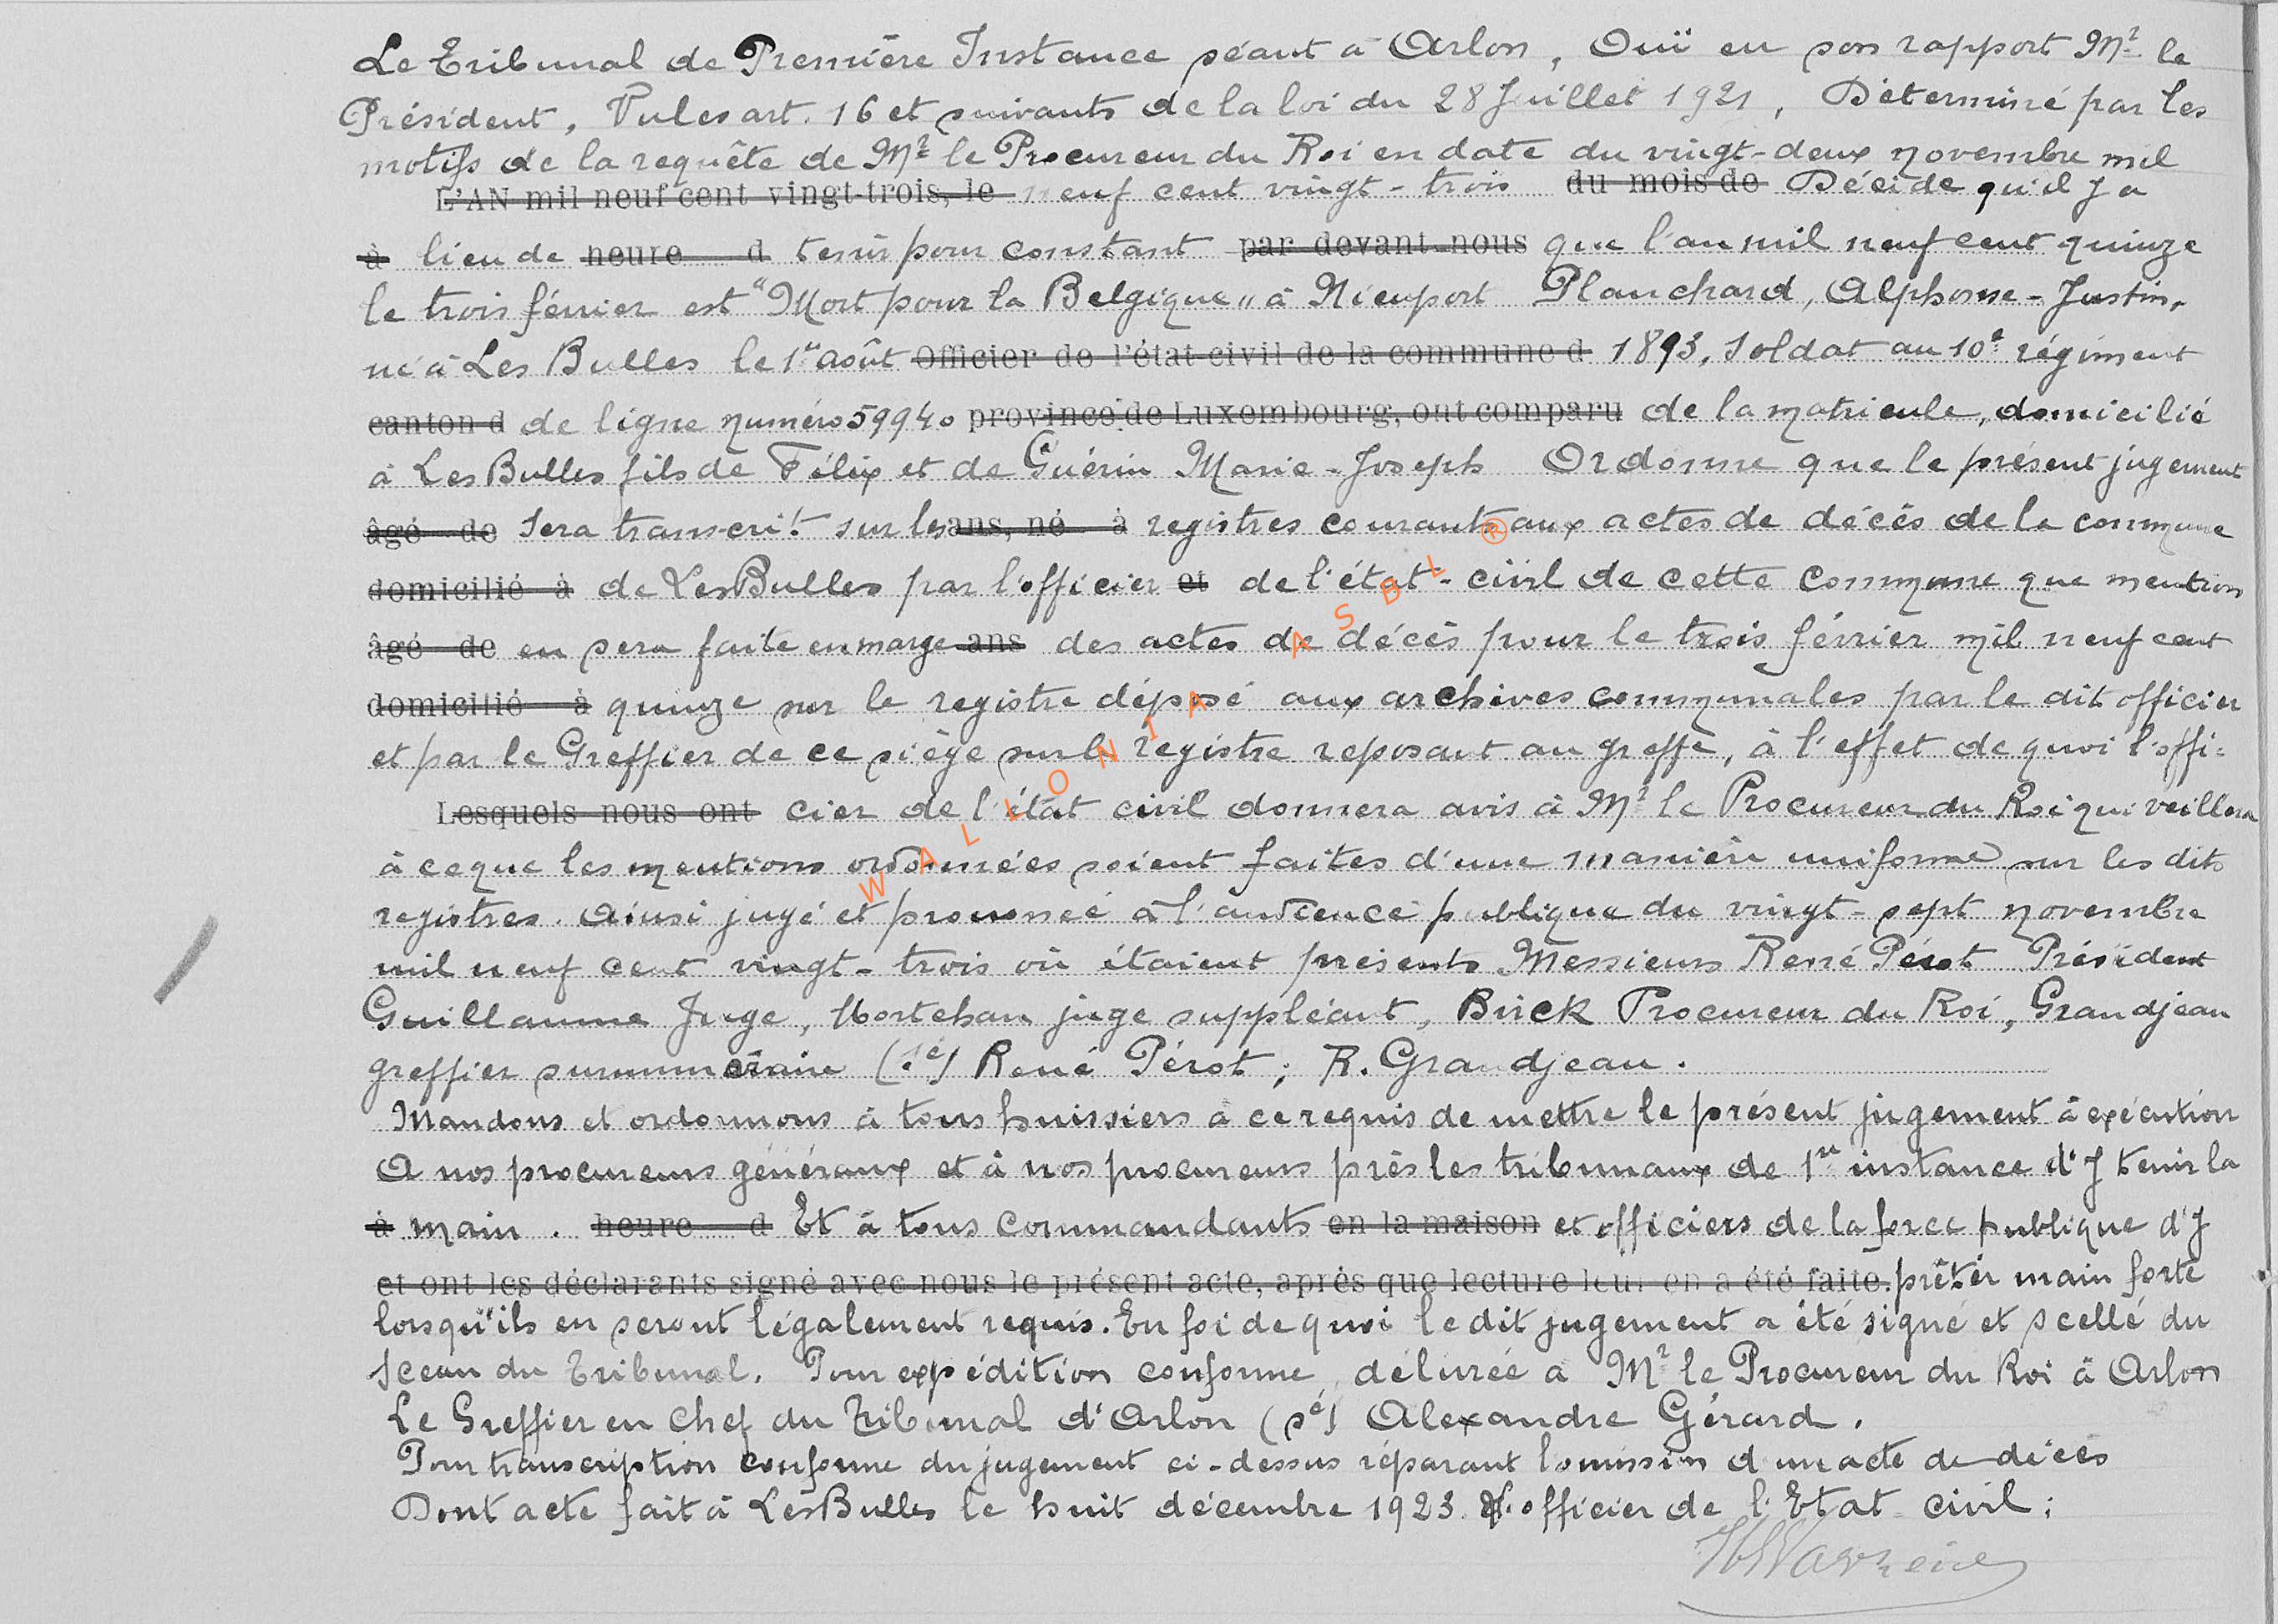 Le Tribunal de Première Instance séant à Arlon, Ouï en son rapport Mr le
Président, Vu les art. 16 et suivants de la loi du 28 Juillet 1921, Déterminé par les
motifs de la requête de Mr le Procureur du Roi en date du vingt-deux novembre mil
L'AN mil neuf cent vingt-trois, le neuf cent vingt-trois du mois de Décide qu'il y a
à lieu de heure d tenir pour constant par devant nous que l'an mil neuf cent quinze
le trois février est "Mort pour la Belgique" à Nieuport Planchard, Alphonse-Justin,
né à Les Bulles le 1er août Officier de l'état-civil de la commune d 1893, soldat au 10e régiment
canton d de ligne numéro 59940 province de Luxembourg, ont comparu de la matricule, domicilié
à Les Bulles fils de Félix et de Guérin Marie-Joseph Ordonne que le présent jugement
âgé de sera transcrit sur les ans, né à registres courants aux actes de décès de la commune
domicilié à de Les Bulles par l'officier et de l'état-civil de cette commune que mention
âgé de en sera faite en marge ans des actes de décès pour le trois février mil neuf cent
domicilié à quinze sur le registre déposé aux archives communales par le dit officier
et par le Greffier de ce siège sur le registre reposant au greffe, à l'effet de quoi l'offi=
Lesquels nous ont cier de l'état civil donnera avis à Mr le Procureur du Roi qui veillera
à ce que les mentions ordonnées soient faites d'une manière uniforme sur les dits
registres. Ainsi jugé et prononcé à l'audience publique du vingt-sept novembre
mil neuf cent vingt-trois où étaient présents Messieurs René Pérot Président
Guillaume Juge, Hortehan juge suppléant, Brick Procureur du Roi, Grandjean
greffier surnuméraire (sé) René Pérot; R. Grandjean.
Mandons et ordonnons à tous huissiers à ce requis de mettre le présent jugement à exécution
A nos procureurs généraux et à nos procureurs près les tribunaux de 1re instance d'y tenir la
à main. heure d Et à tous commandants en la maison et officiers de la force publique d'y
et ont les déclarants signé avec nous le présent acte, après que lecture leur en a été faite. prêter main forte
lorsqu'ils en seront légalement requis. En foi de quoi le dit jugement a été signé et scellé du
sceau du Tribunal. Pour expédition conforme, délivrée à Mr le Procureur du Roi à Arlon
Le Greffier en Chef du Tribunal d'Arlon (sé) Alexandre Gérard.
Pour transcription conforme du jugement ci-dessus réparant l'omission d'un acte de décès
Dont acte fait à Les Bulles le huit décembre 1923. L'officier de l'Etat-civil;
WALLONIA ASBL ®